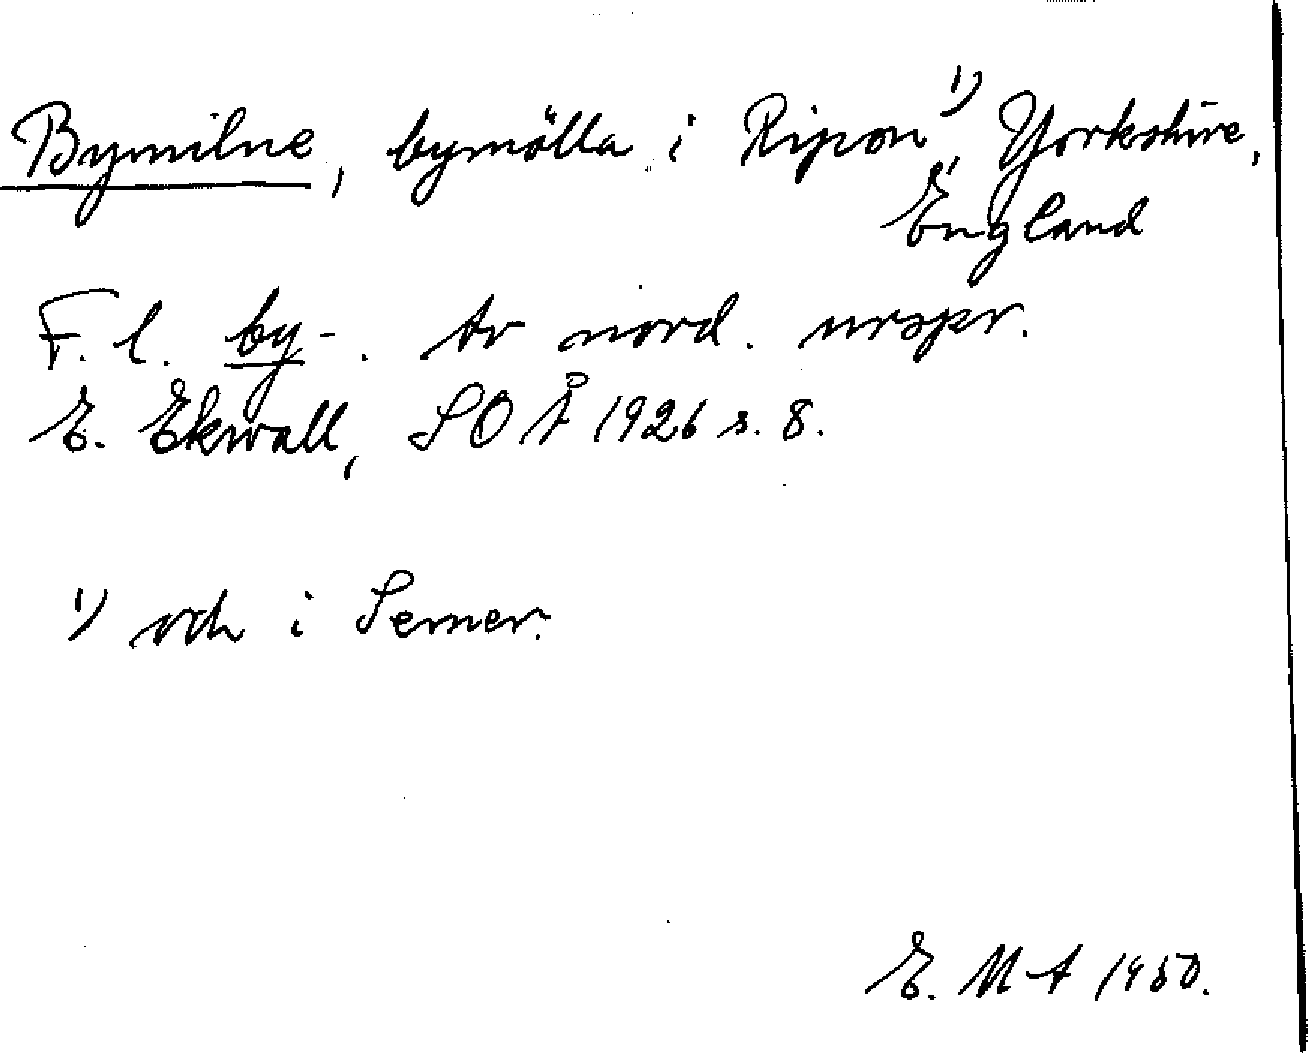 Bymilne, bymölla i Ripon ¹⁾, Yorkshire,
England
F. l. by-. Av nord. urspr.
E. Ekwall, SOÅ 1926 s. 8.
¹⁾ och i Semer.
E. M-A 1950.